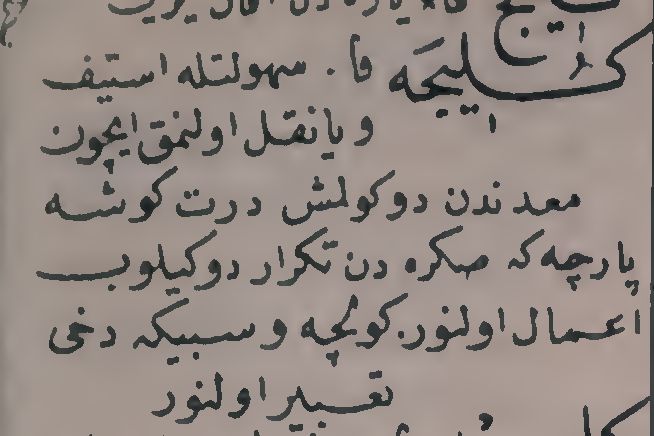 كُلِيجَه فا. سهولتله استيف
و يا نقل اولنمق ايچون
معدندن دوكولمش درت كوشه
پارچه كه صكره دن تكرار دوكيلوب
اعمال اولنور. كولچه و سبيكه دخى
تعبير اولنور